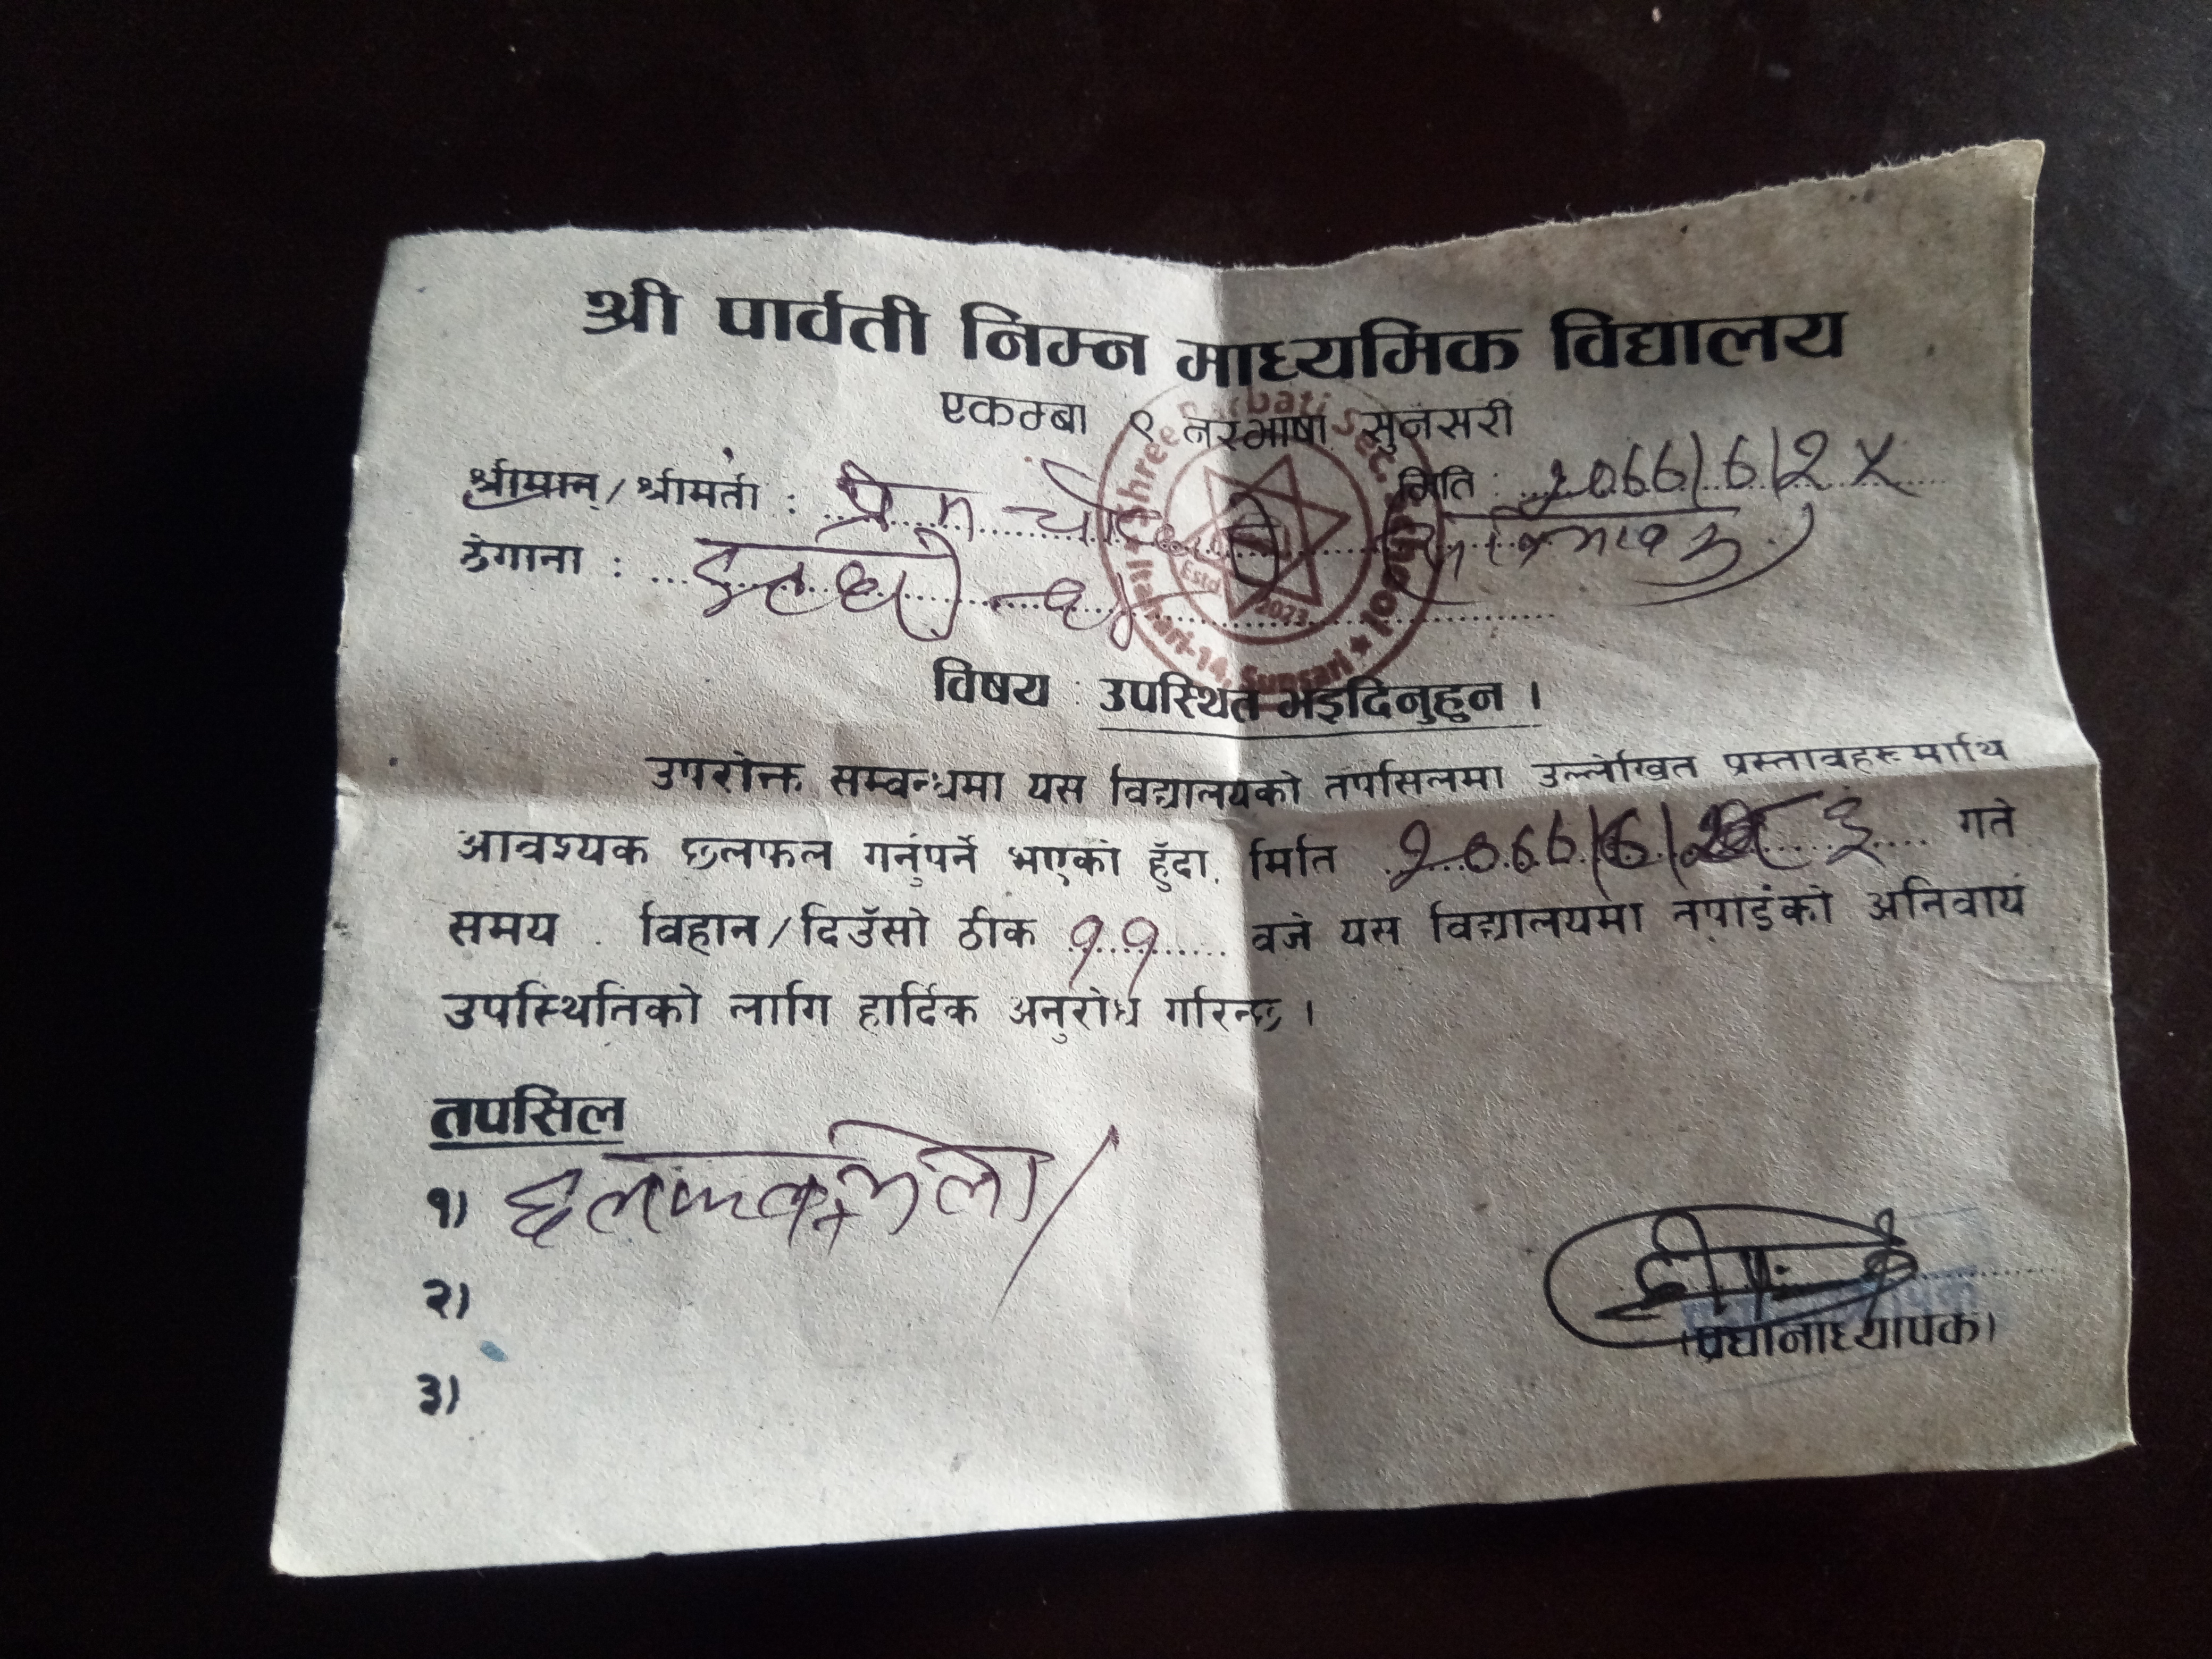 श्री पार्वती निम्न माध्यमिक विद्यालय
एकम्बा ९ नरभाषा सुनसरी
मिति : २०६६/६/२५
श्रीमान्/श्रीमती : प्रेम
ठेगाना : इटहरी
Shree Parbati Sec. School
Itahari-14, Sunsari
Estd 2023
विषय : उपस्थित भइदिनुहुन ।
उपरोक्त सम्बन्धमा यस विद्यालयको तपसिलमा उल्लेखित प्रस्तावहरुमाथि
आवश्यक छलफल गर्नुपर्ने भएको हुँदा, मिति २०६६/६/ गते
समय . विहान/दिउँसो ठीक ११ वजे यस विद्यालयमा नपाईंको अनिवार्य
उपस्थितिको लागि हार्दिक अनुरोध गरिन्छ ।
तपसिल
१)
२)
३)
(प्रधानाध्यापक)